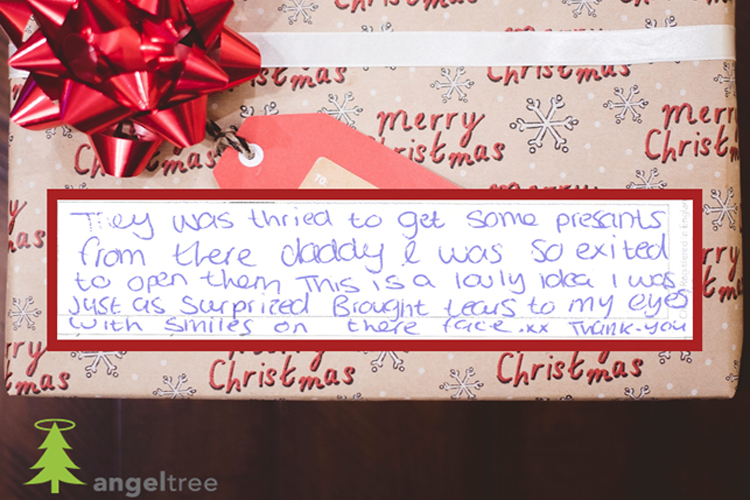 Christmas
merry
Christmas
Christmas
merry
Christmas
merry
Christmas
TO
They was thried to get some presants
from there daddy & was so exited
to open them This is a lovly idea I was
Just as surprized Brought tears to my eyes
with smiles on there face.xx Thank-you
Christmas
Christmas
angeltree